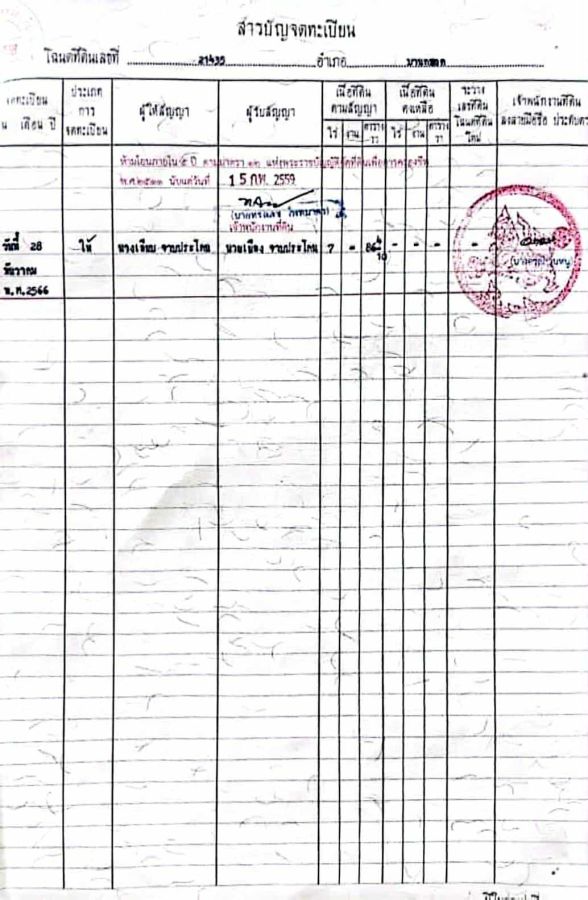 สารบัญจดทะเบียน
โฉนดที่ดินเลขที่ 21435 อำเภอ
จดทะเบียน
เดือน ปี
ประเภท
การ
จดทะเบียน
ผู้ให้สัญญา
ผู้รับสัญญา
เนื้อที่ดิน
ตามสัญญา
ไร่ งาน ตาราง
วา
เนื้อที่ดิน
คงเหลือ
ไร่ งาน ตาราง
วา
ระวาง
เลขที่ดิน
โฉนดที่ดิน
ใหม่
เจ้าพนักงานที่ดิน
ลงลายมือชื่อ ประทับตรา
ห้ามโอนภายใน ๕ ปี ตามมาตรา ๑๒ แห่งพระราชบัญญัติจัดที่ดินเพื่อการครองชีพ
พ.ศ.๒๕๑๑ นับแต่วันที่ 15 กพ. 2559
เจ้าพนักงานที่ดิน
วันที่ 28 ให้ นางเจียบ จาบประโคน นายเมือง จาบประโคน 7 - 86 4/10 - - - -
ธันวาคม
พ.ศ.2566